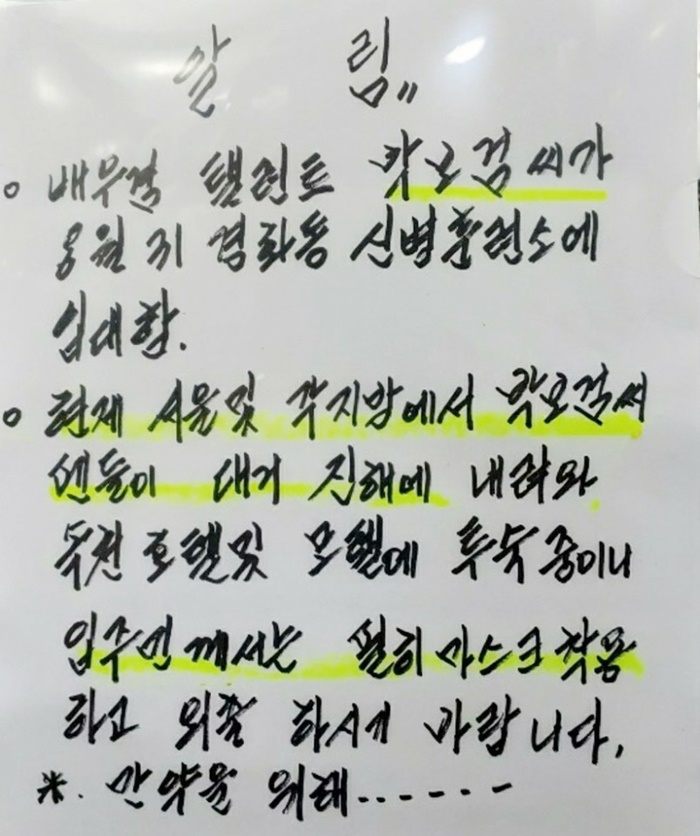 알 림"
• 배우겸 탤런트 박보검씨가
8월 31 경화동 신병훈련소에
입대함.
• 현재 서울및 각지방에서 박보검씨
팬들이 대거 진해에 내려와
속천 호텔및 모텔에 투숙중이니
입주민께서는 필히 마스크착용
하고 외출 하시기 바랍니다.
※. 만약을 위해......